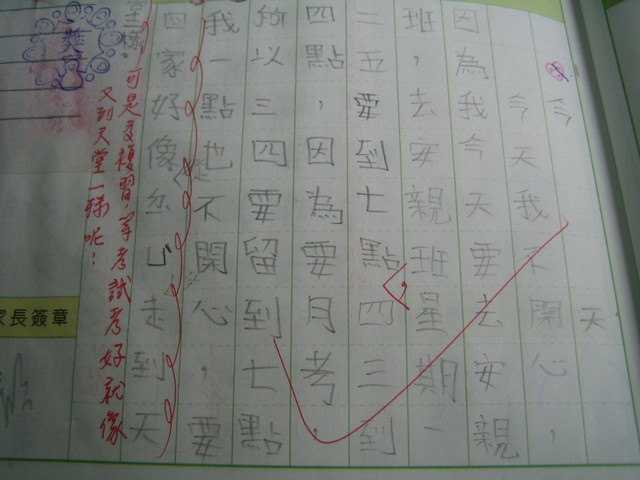 今天
今天我不開心,
因為我今天要去安親
班,去安親班星期一
二五要到七點四三到
四點,因為要月考,
所以三四要留到七點
我一點也不開心,要
回家好像山走到天
可是多複習,等考試考好就像
又到天堂一樣呢!
家長簽章